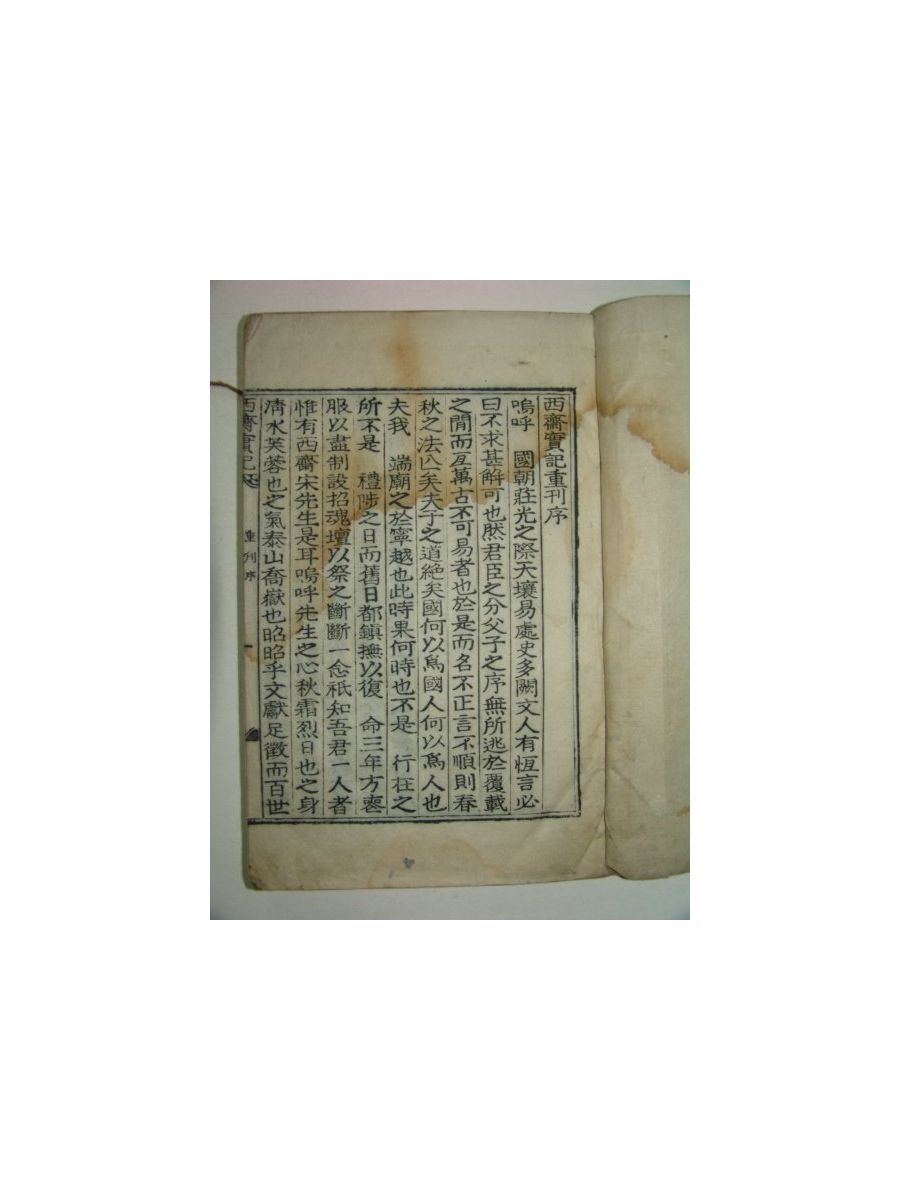 西齋實記重刊序
嗚呼 國朝莊光之際天壤易處史多闕文人有恆言必
曰不求甚解可也然君臣之分父子之序無所逃於覆載
之間而亙萬古不可易者也於是而名不正言不順則春
秋之法亡矣夫子之道絶矣國何以爲國人何以爲人也
夫我 端廟之於寧越也此時果何時也不是 行在之
所不是 禮陟之日而舊日都鎭撫以復 命三年方喪
服以盡制設招魂壇以祭之斷斷一念祇知吾君一人者
惟有西齋宋先生是耳嗚呼先生之心秋霜烈日也之身
淸水芙蓉也之氣泰山喬嶽也昭昭乎文獻足徵而百世
西齋實記 重刊序 一